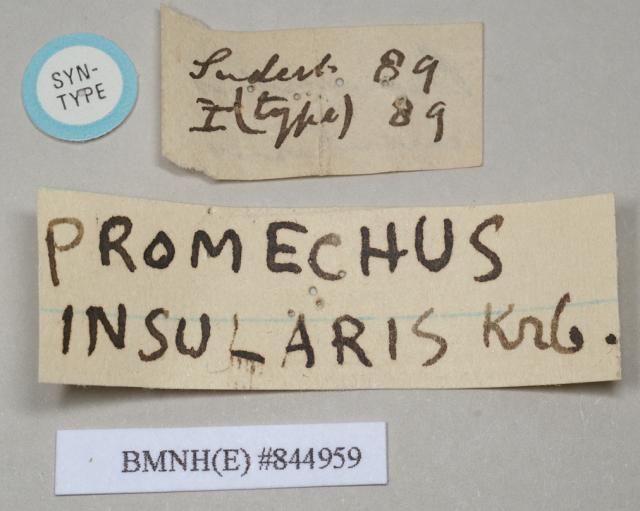 SYN-
TYPE
89
I (type) 89
PROMECHUS
INSULARIS Krb.
BMNH(E) #844959